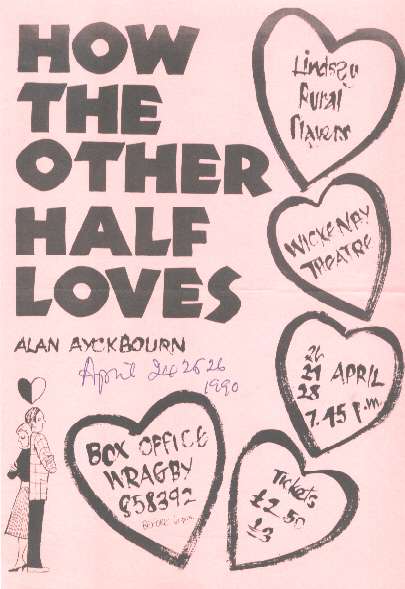 HOW
THE
OTHER
HALF
LOVES
ALAN AYCKBOURN
April
26
1990
Lindsey
Rural
Players
WICKENBY
THEATRE
26
27 APRIL
28
7.45 p.m.
BOX OFFICE
WRAGBY
858392
Tickets
£2.50
£3